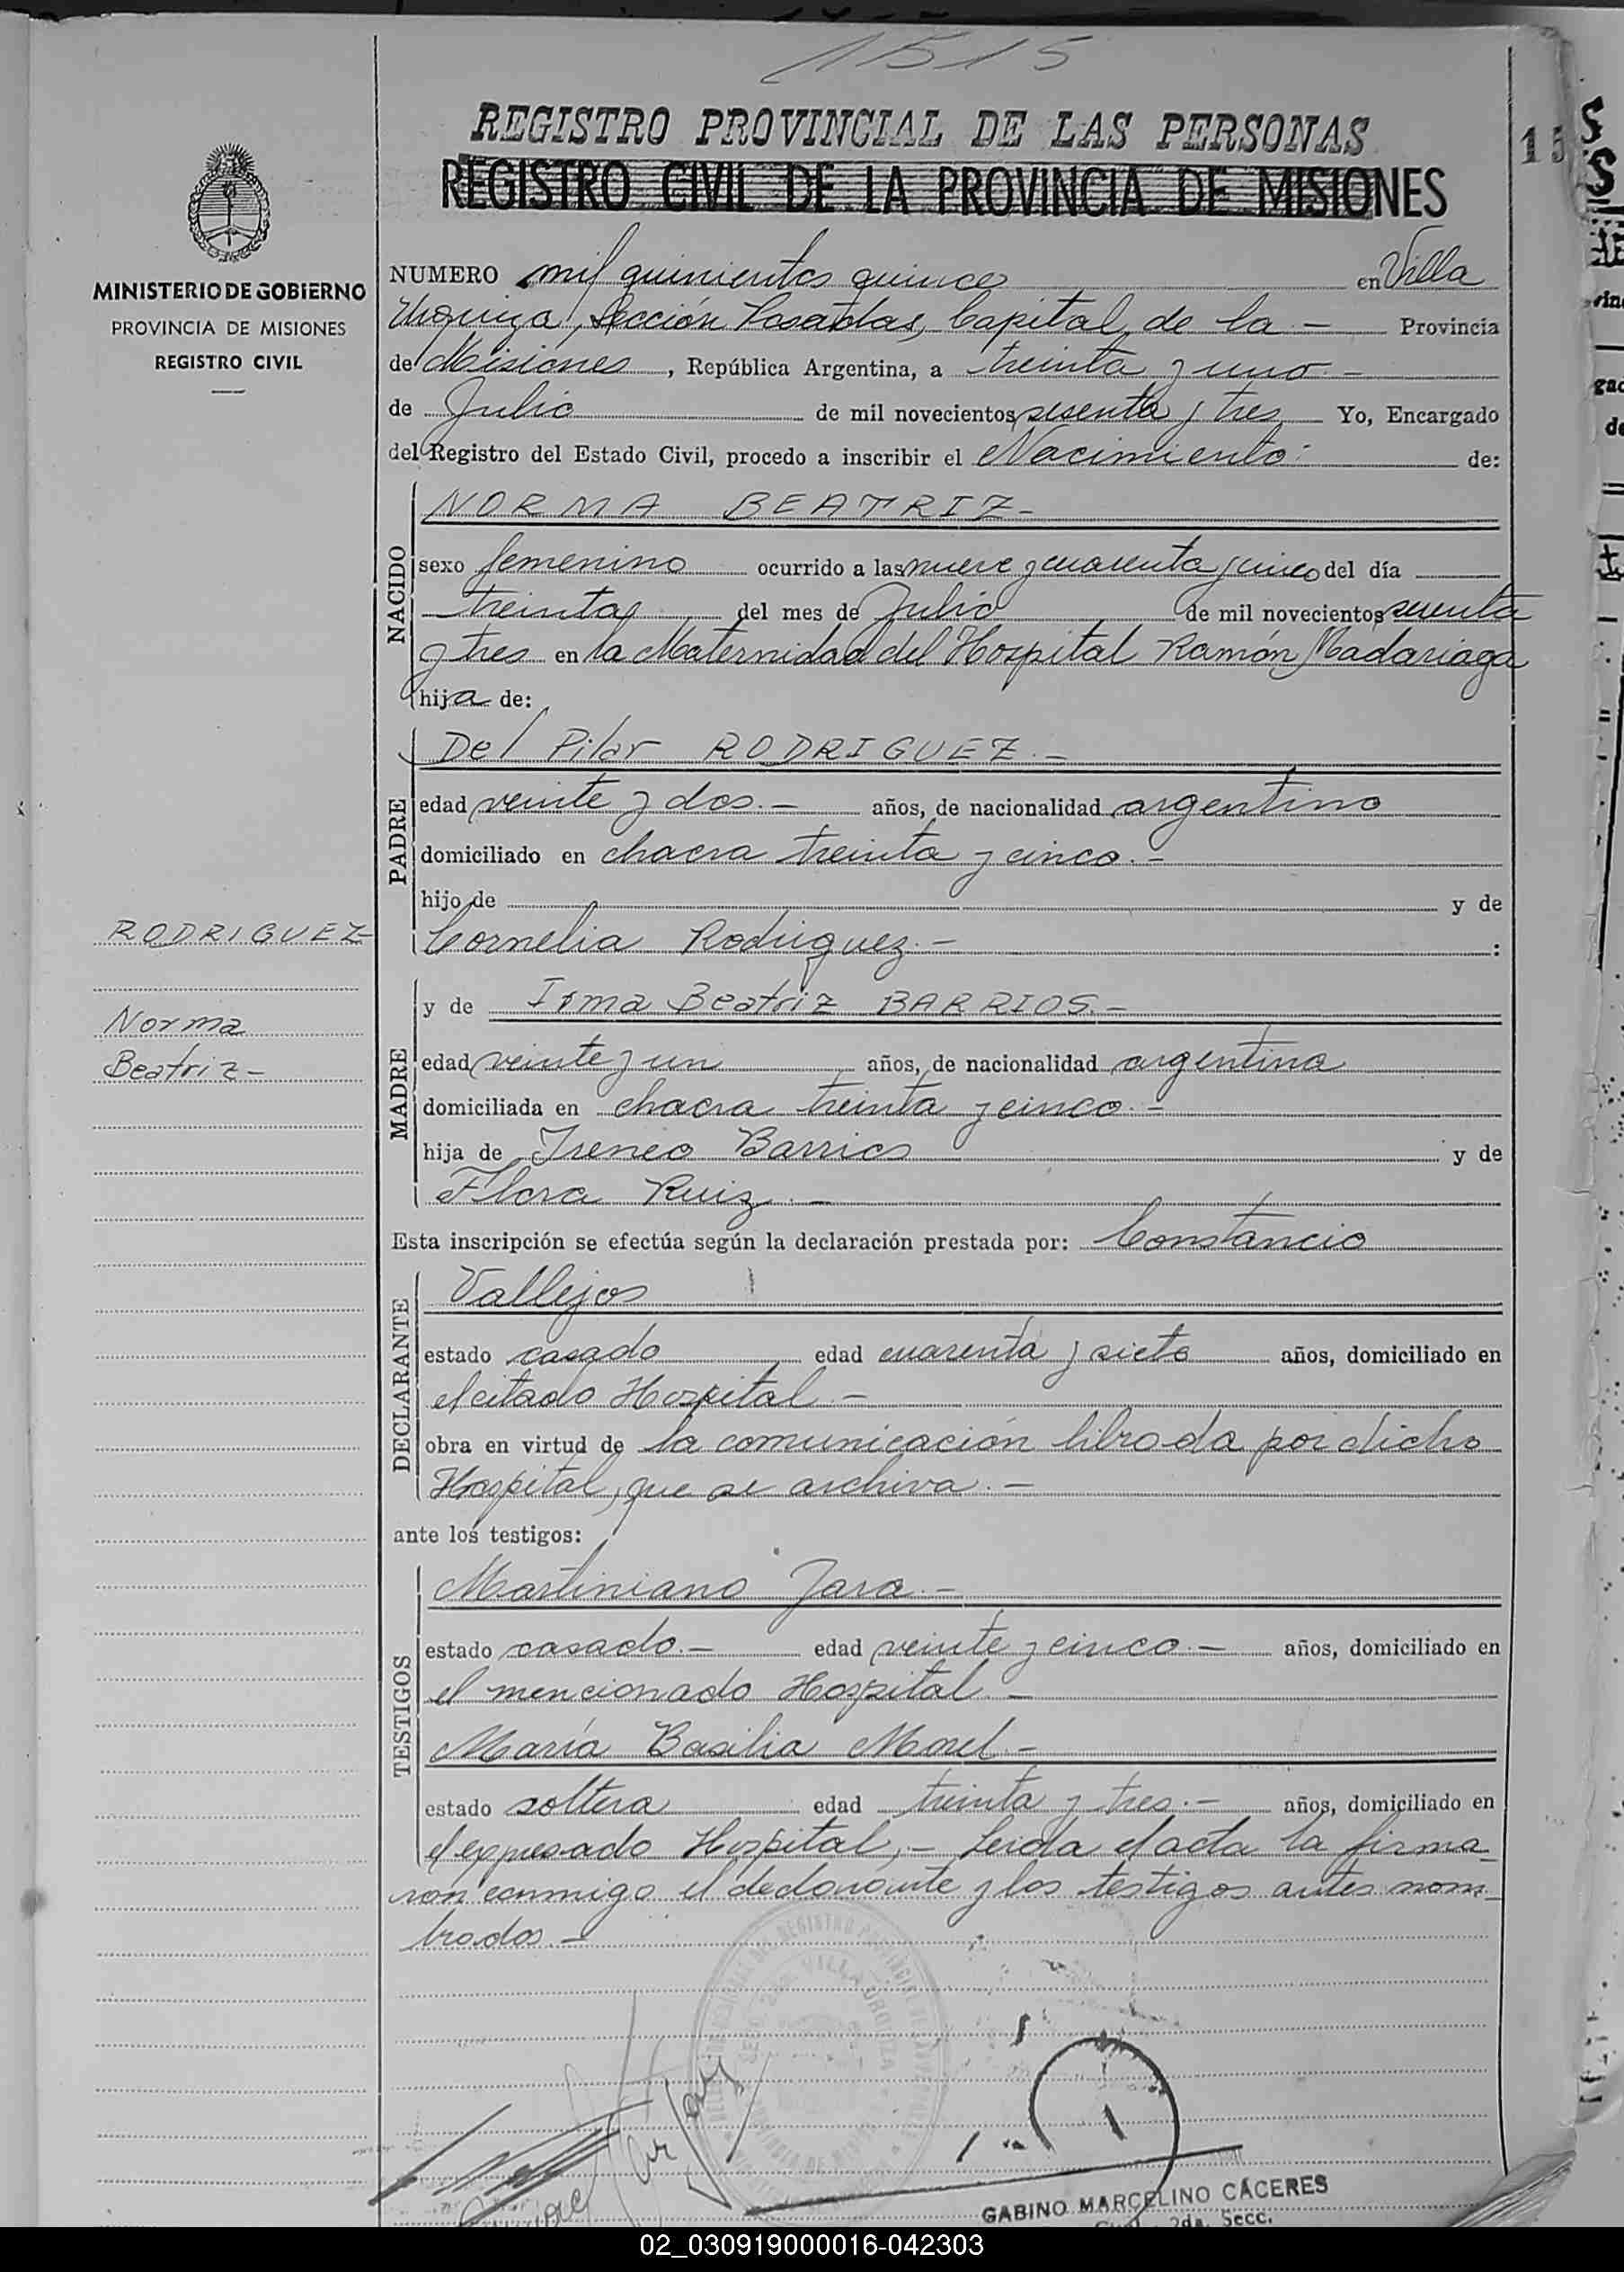 1515
REGISTRO PROVINCIAL DE LAS PERSONAS
REGISTRO CIVIL DE LA PROVINCIA DE MISIONES
15
MINISTERIO DE GOBIERNO
PROVINCIA DE MISIONES
REGISTRO CIVIL
NUMERO mil quinientos quince en Villa
Urquiza, Sección Posadas, Capital de la - Provincia
de Misiones, República Argentina, a treinta y uno.-
de Julio de mil novecientos sesenta y tres Yo, Encargado
del Registro del Estado Civil, procedo a inscribir el Nacimiento de:
NACIDO
NORMA BEATRIZ-
sexo femenino ocurrido a las nueve y cuarenta y cinco del día
treinta del mes de Julio de mil novecientos sesenta
y tres en la Maternidad del Hospital Ramón Madariaga
hija de:
PADRE
Del Pilar RODRIGUEZ.-
edad veinte y dos.- años, de nacionalidad argentino
domiciliado en chacra treinta y cinco.-
hijo de y de
Cornelia Rodriguez.- :
RODRIGUEZ-
Norma
Beatriz-
MADRE
y de Irma Beatriz BARRIOS.-
edad veinte y un años, de nacionalidad argentina
domiciliada en chacra treinta y cinco.-
hija de Ireneo Barrios y de
Flora Ruiz.-
Esta inscripción se efectúa según la declaración prestada por: Constancio
DECLARANTE
Vallejos
estado casado edad cuarenta y siete años, domiciliado en
el citado Hospital.-
obra en virtud de la comunicación librada por dicho
Hospital, que se archiva.-
ante los testigos:
TESTIGOS
Martiniano Jara.-
estado casado.- edad veinte y cinco.- años, domiciliado en
el mencionado Hospital.-
María Basilia Morel.-
estado soltera edad treinta y tres.- años, domiciliado en
el expresado Hospital,- Leida el acta la firma-
ron conmigo el declarante y los testigos antes nom-
brados.-
VILLA URQUIZA
GABINO MARCELINO CÁCERES
2da. Secc.
02_030919000016-042303